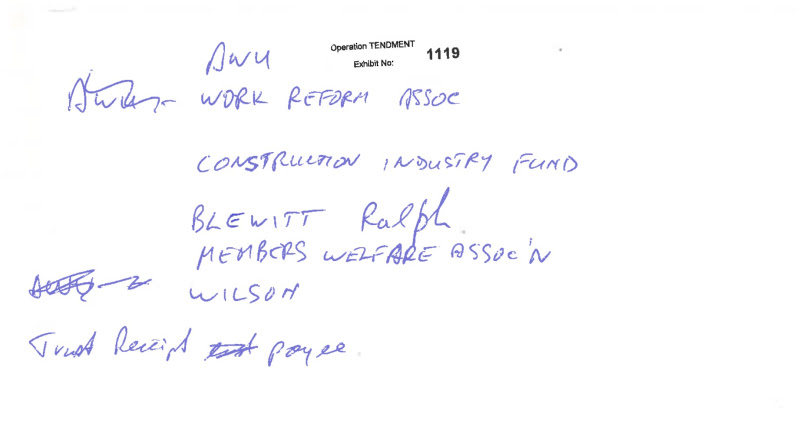 Operation TENDMENT
Exhibit No: 1119
AWU
WORK REFORM ASSOC
CONSTRUCTION INDUSTRY FUND
BLEWITT Ralph
MEMBERS WELFARE ASSOC'N
WILSON
Trust Receipt payee